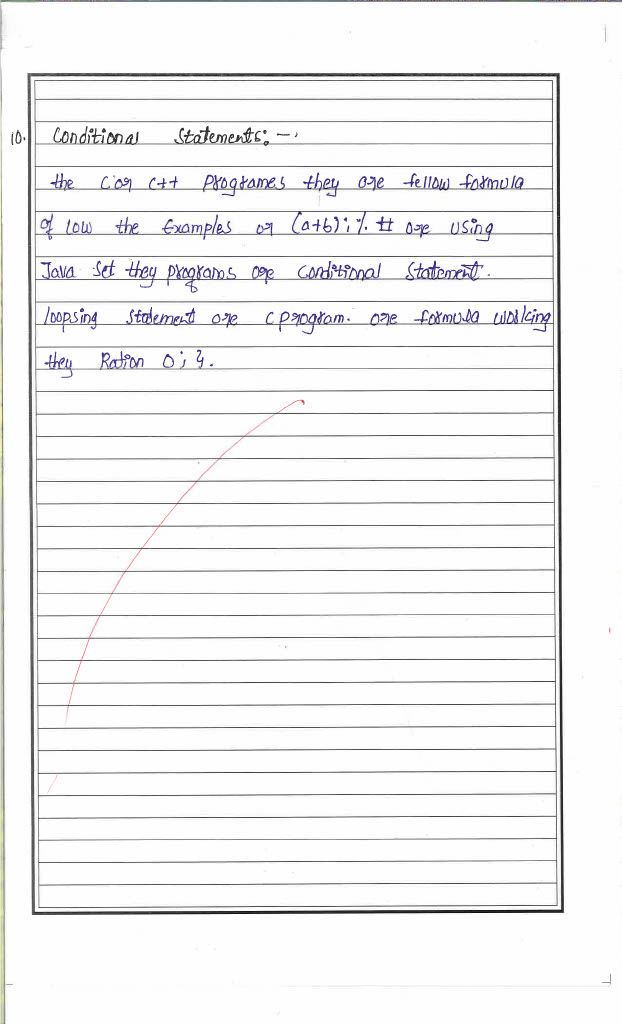 10. Conditional Statements:-.
the C or C++ Programes they are fellow formula
of low the Examples or (a+b); %. # are using
Java set they programs are conditional Statement.
loopsing Statement are C program. are formula working
they Ration 0; }.